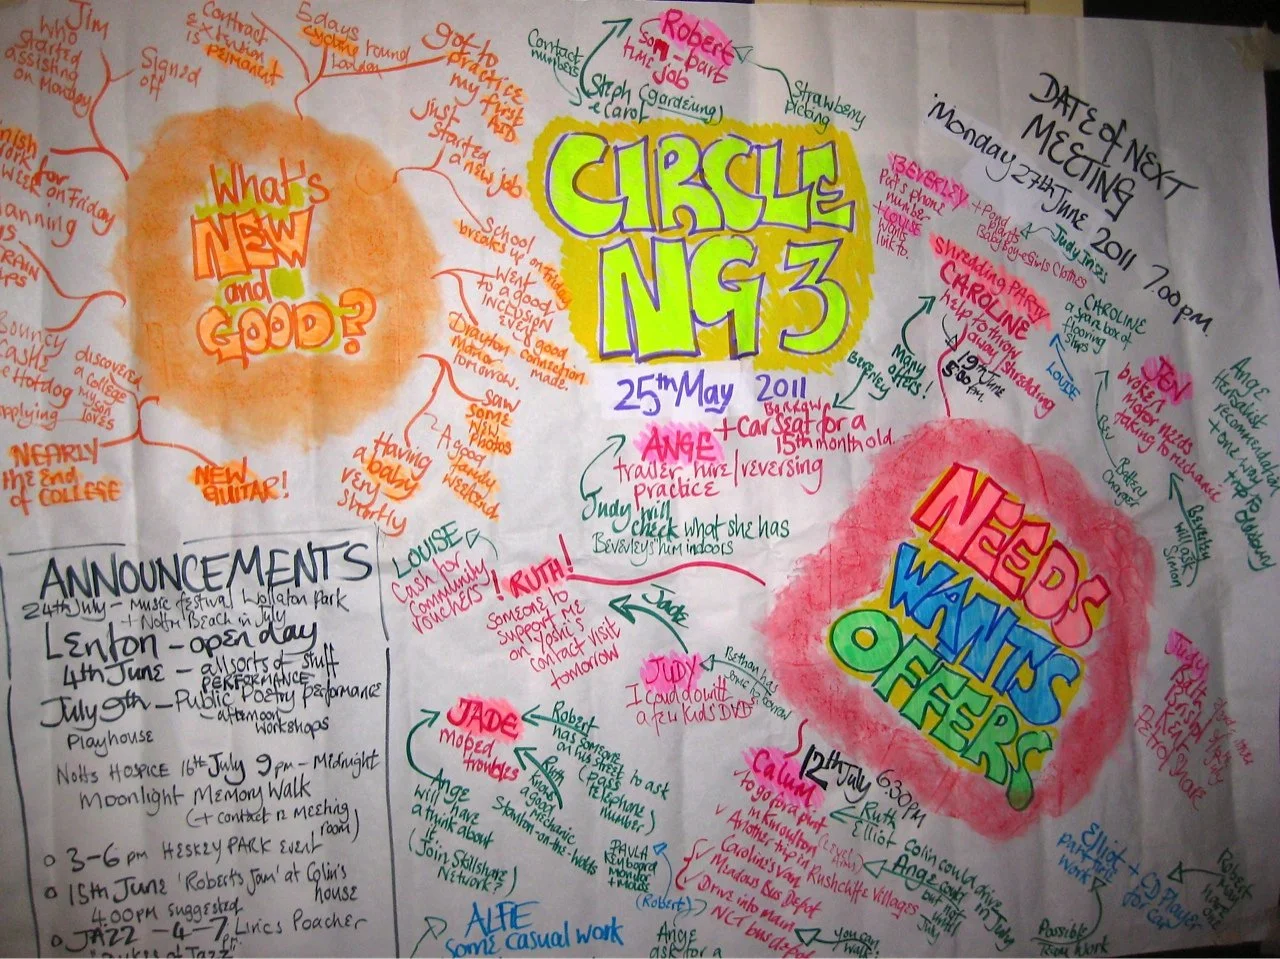 Jim
who
started
assisting
on monday
Signed
off
Contract
extension
is permanent
5 days
cycling round
London
got to
practice
my first
AID
Just
started
a new job
School
breaks up on Friday
went
to a good
inclusion
event good
connection
made.
Drayton
Manor
tomorrow.
saw
some
new
photos
A good
family
weekend
Having
a baby
very
shortly
NEW
GUITAR!
discovered
a college
my son
loves
NEARLY
the end
of COLLEGE
Bouncy
What's
NEW
and
GOOD?
Contact
numbers
Roberts
som - part
time job
Steph (gardening)
& Carol
Strawberry
picking
CIRCLE
NG 3
25th May 2011
DATE of NEXT
MEETING
Monday 27th June 2011 7.00 pm.
BEVERLEY
Pat's phone
number
+ Louise
want
link to.
+ Pond
plants
Baby boy & Girls Clothes
Judy
Shredding PARTY
CAROLINE
help to throw
away / shredding
19th June
5:00 pm.
Many
offers!
CAROLINE
a spare box of
flooring
Louise
JEN
broken
motor needs
taking to mechanic
Battery
Charger
Beverley
will ask
Simon
Ange
Herbalist
recommendation
+ one way
trip to
Beverley
+ Borrow
car seat for a
15th month old.
ANGE
trailer hire/reversing
practice
Judy will
check what she has
Beverley's him indoors
NEEDS
WANTS
OFFERS
LOUISE
Cash for
community
vouchers!
! RUTH!
someone to
support me
on Yoshi's
contact visit
tomorrow
Jade
JUDY
I could do with
a few kids DVD
Bethan has
some tomorrow
JADE
moped
troubles
Robert
has someone
on his street to ask
(pass
telephone
number)
Ruth
knows
a good
mechanic
Stanton-on-the-wolds
Ange
will have
a think about
it
(Join Skillshare
Network?)
PAULA
Keyboard
Monitor
+ Mouse
(Robert)
ALFIE
some casual work
Ange
ask for a
Calum
12th July 6 30PM
to go for a pint
in Knowlton
Ruth
Elliot
Another trip in
Caroline's van Rushcliffe Villages
Meadows Bus Depot
Drive into main
NCT bus depot
Colin could drive
in July
Ange could
but not
until
July
You can
walk!
Elliot
part time
work
+ CD Player
for car
Possible
team work
ANNOUNCEMENTS
24th July - Music festival Wollaton Park
+ Nottm Beach in July
Lenton - open day
4th June - all sorts of stuff
PERFORMANCE
July 9th - Public Poetry performance
- afternoon
workshops
Playhouse
Notts Hospice 16th July 9pm - Midnight
Moonlight Memory Walk
(+ contact n meeting
room)
o 3-6 pm HESKEY PARK EVENT
o 15th June 'Roberts Jam' at Colin's
house
4:00PM suggested
o JAZZ - 4-7 Lyrics Poacher